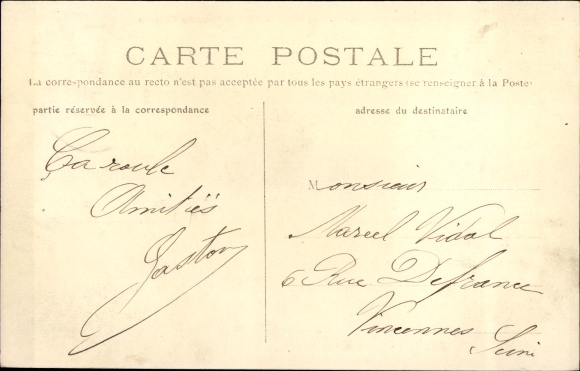 CARTE POSTALE
La correspondance au recto n'est pas acceptée par tous les pays étrangers (se renseigner à la Poste)
partie réservée à la correspondance
adresse du destinataire
Ça roule
Amitiés
Gaston
Monsieur
Marcel Vidal
6 Rue Defrance
Vincennes
Seine